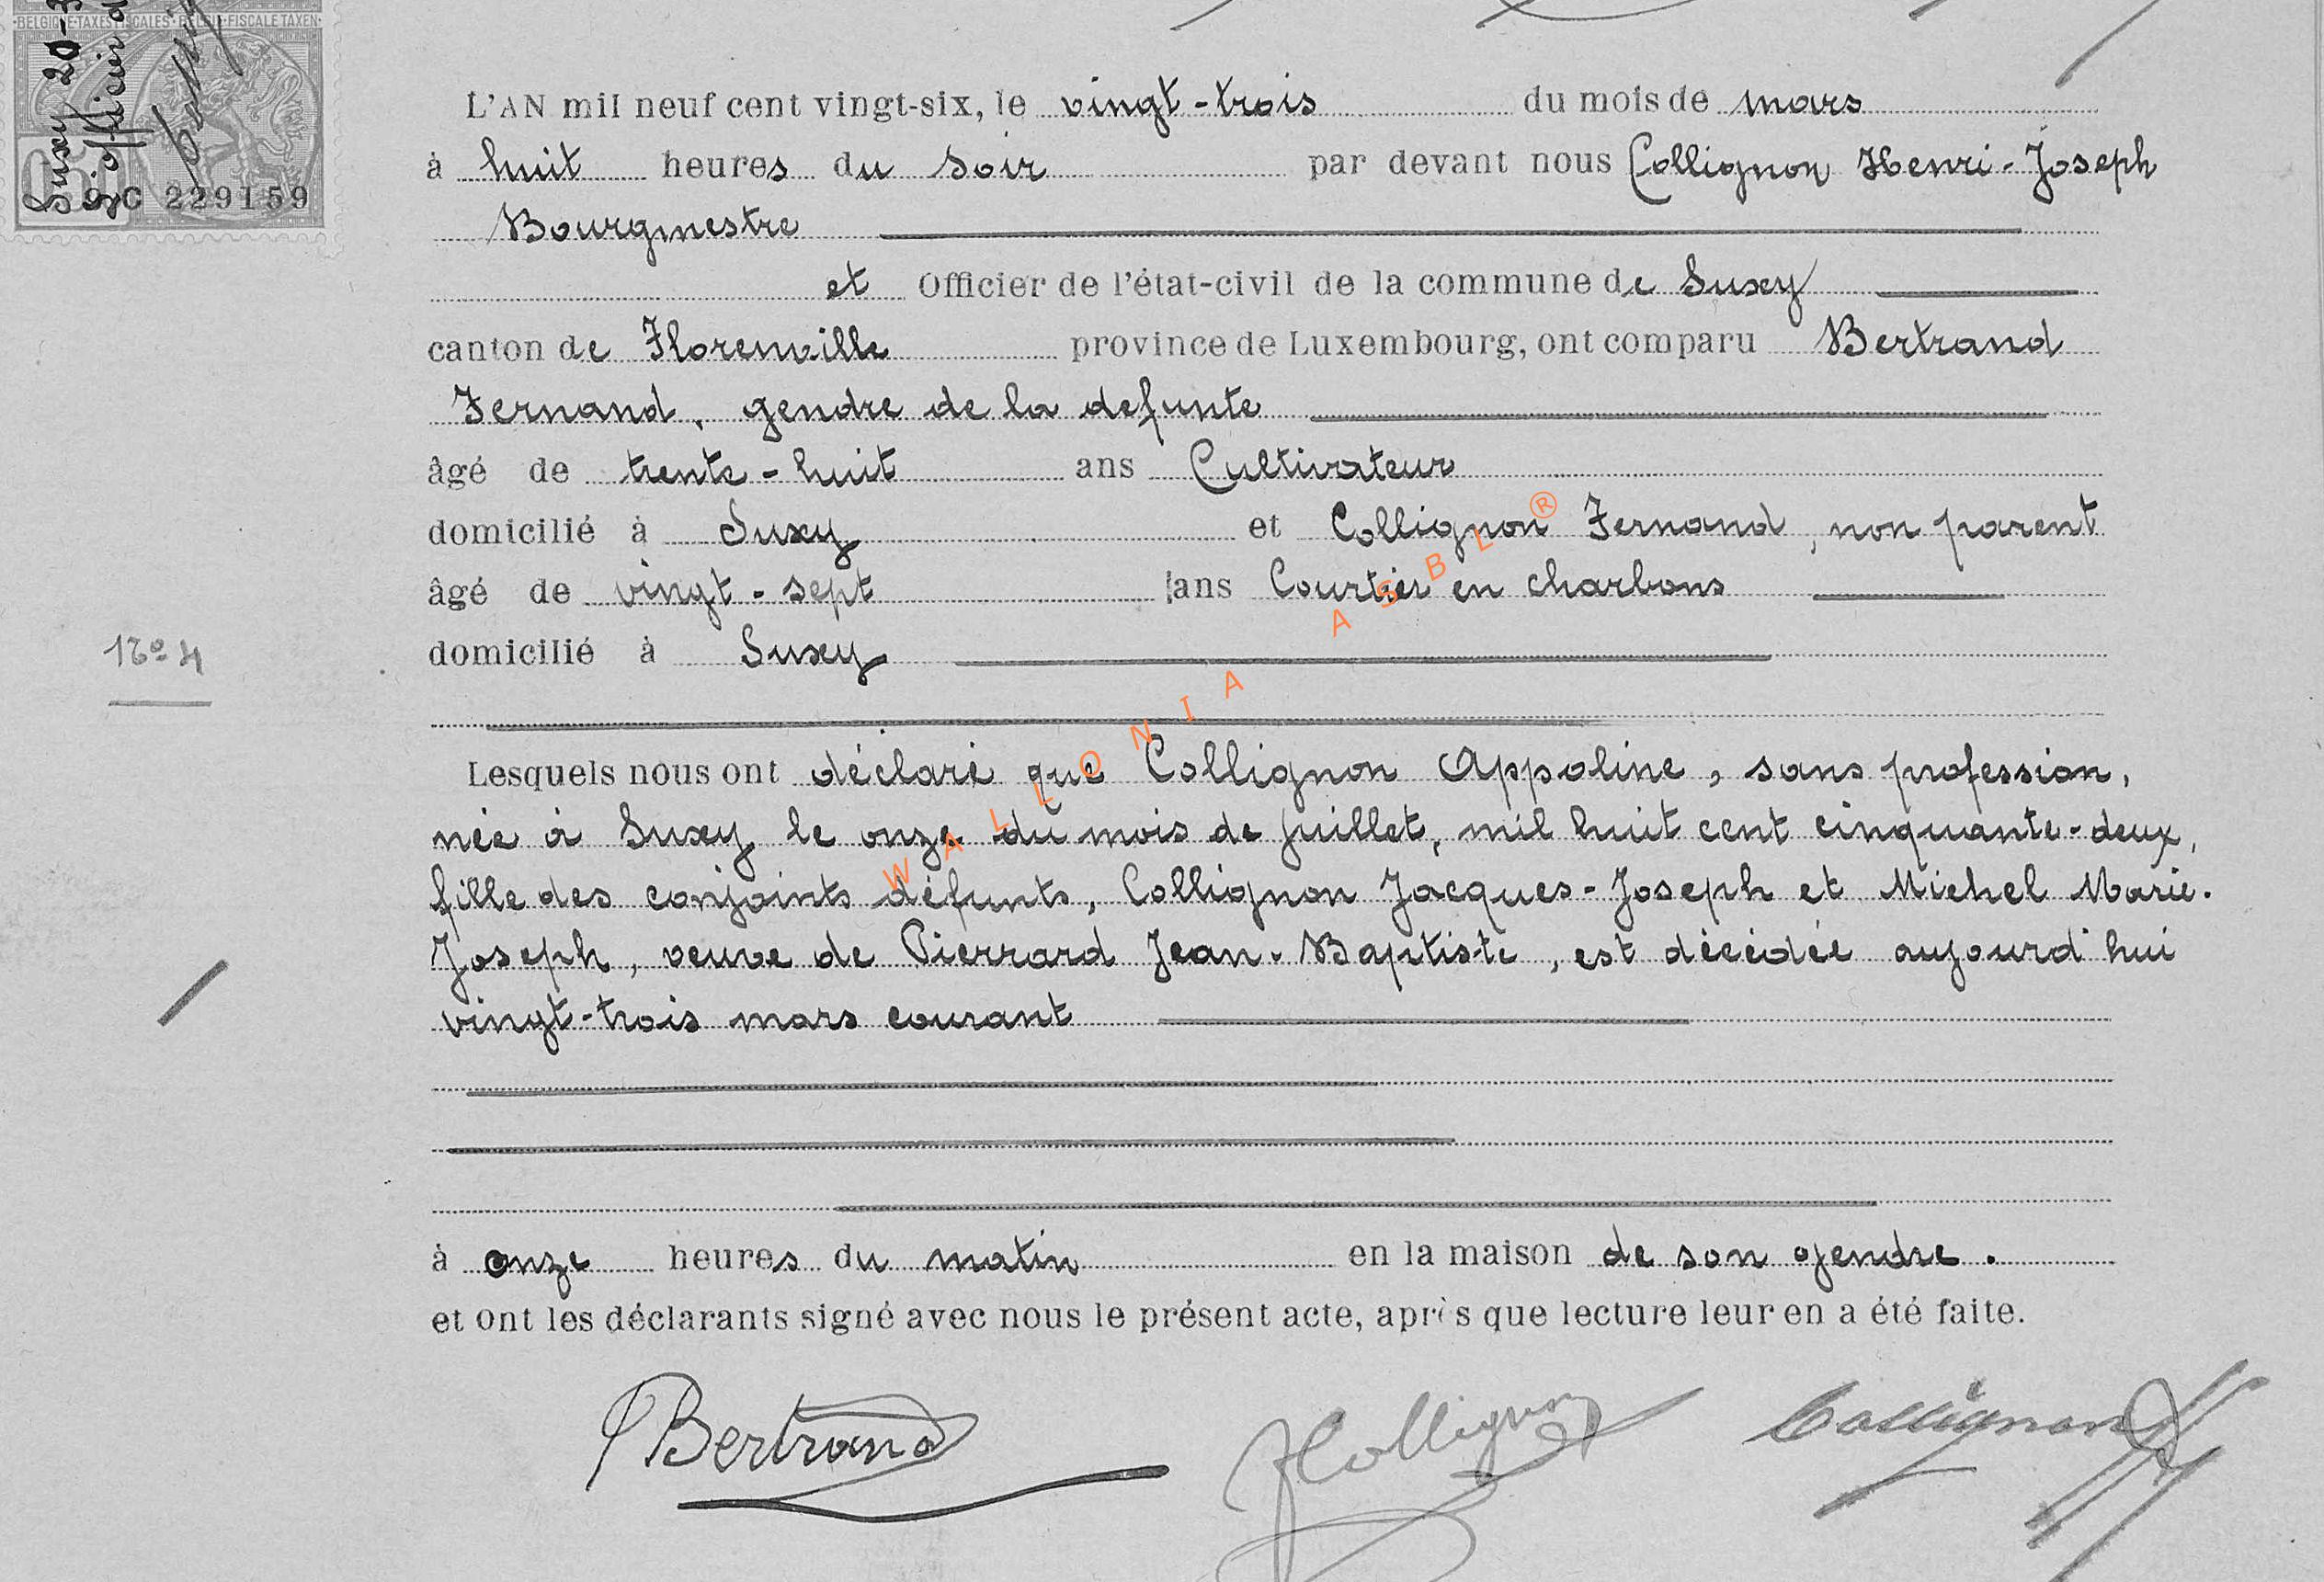 BELGIQUE-TAXES FISCALES - BELGIE-FISCALE TAXEN
Suxy 20-3
9 C 229159
L'AN mil neuf cent vingt-six, le vingt-trois du mois de mars
à huit heures du soir par devant nous Collignon Henri-Joseph
Bourgmestre
et Officier de l'état-civil de la commune de Suxy
canton de Florenville province de Luxembourg, ont comparu Bertrand
Fernand, gendre de la defunte
âgé de trente-huit ans Cultivateur
domicilié à Suxy et Collignon Fernand, non parent
âgé de vingt-sept ans Courtier en charbons
N° 4
domicilié à Suxy
Lesquels nous ont déclaré que Collignon Appoline, sans profession,
née à Suxy le onze du mois de juillet, mil huit cent cinquante-deux,
fille des conjoints défunts, Collignon Jacques-Joseph et Michel Marie-
Joseph, veuve de Pierrard Jean-Baptiste, est décédée aujourd'hui
vingt-trois mars courant
à onze heures du matin en la maison de son gendre.
et ont les déclarants signé avec nous le présent acte, après que lecture leur en a été faite.
Bertrand FCollignon Collignon
WALLONIA ASBL ®